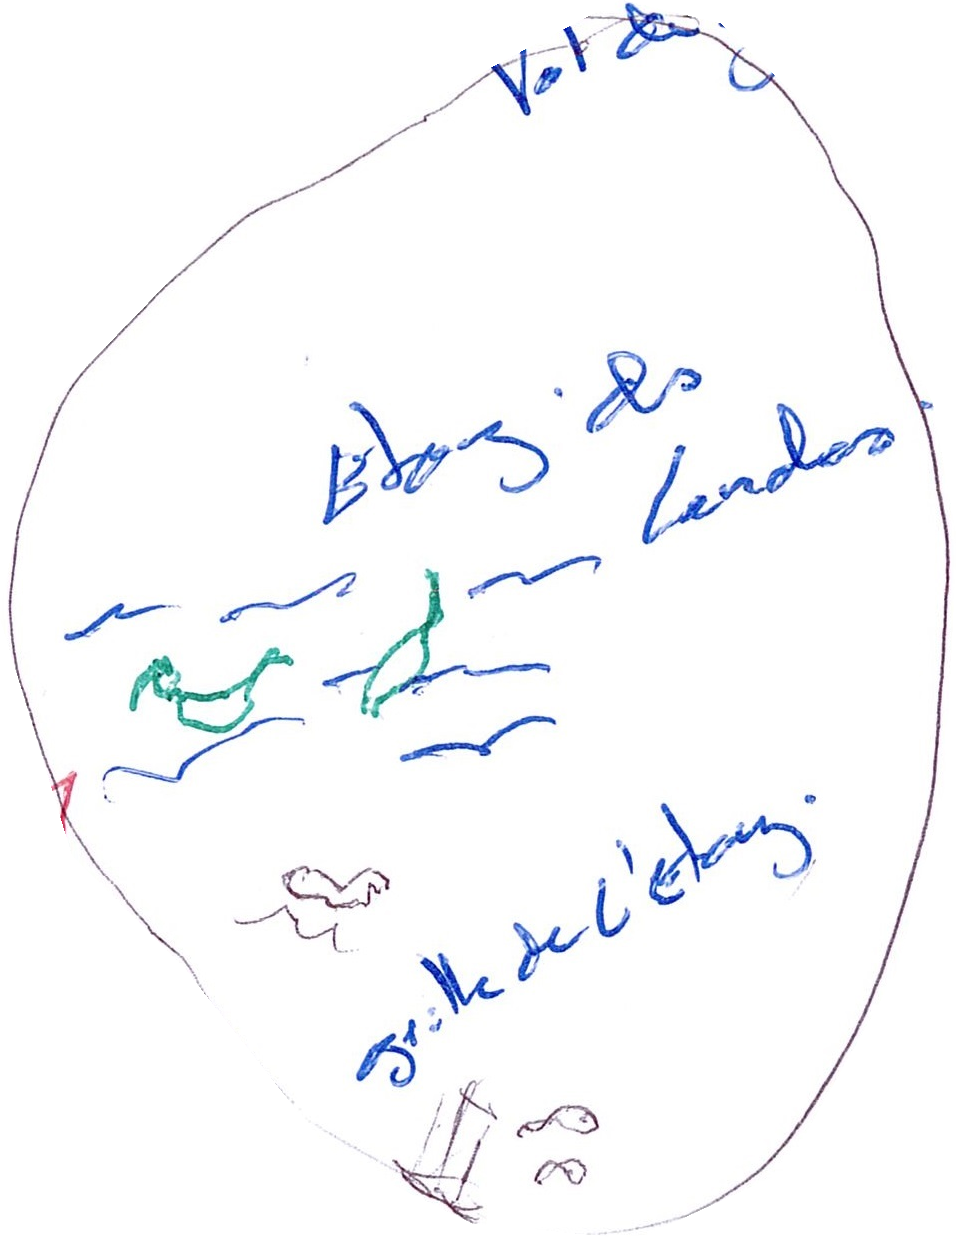 Val de
Etang des
Landes
grille de l'étang